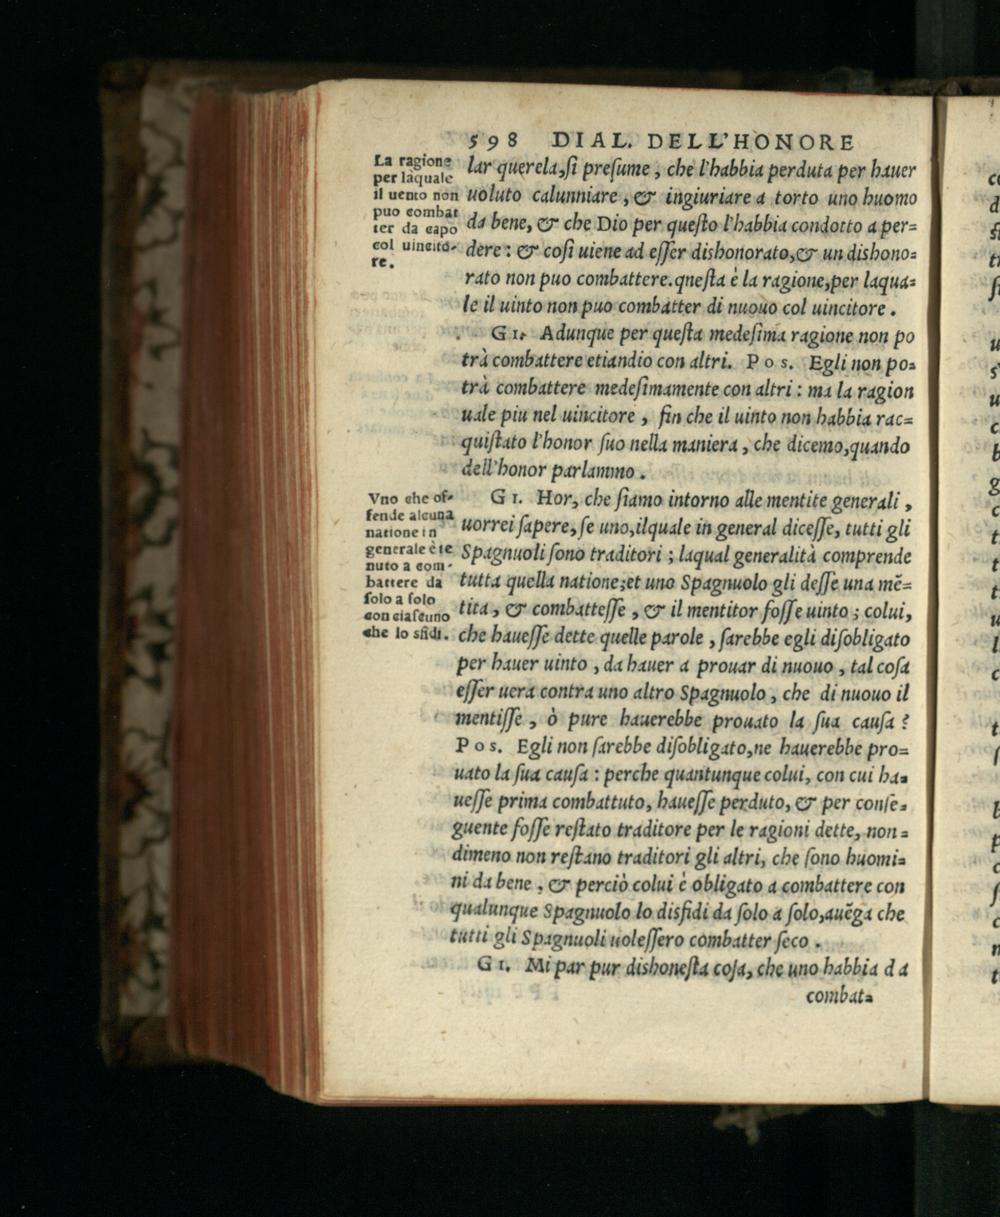 598 DIAL. DELL'HONORE
La ragione
per laquale
il uento non
puo combat
ter da capo
col uincito-
re.
lar querela, ſi preſume, che l'habbia perduta per hauer
uoluto calunniare, & ingiuriare a torto uno huomo
da bene, & che Dio per queſto l'habbia condotto a per=
dere: & coſi uiene ad eſſer dishonorato, & un dishono=
rato non puo combattere. qneſta è la ragione, per laqua=
le il uinto non puo combatter di nuouo col uincitore.
GI. Adunque per queſta medeſima ragione non po
trà combattere etiandio con altri. Pos. Egli non po=
trà combattere medeſimamente con altri: ma la ragion
uale piu nel uincitore, fin che il uinto non habbia rac=
quiſtato l'honor ſuo nella maniera, che dicemo, quando
dell'honor parlammo.
Vno che of-
fende alcuna
natione in
generale è te
nuto a com-
battere da
ſolo a ſolo
con ciaſcuno
che lo sfidi.
GI. Hor, che ſiamo intorno alle mentite generali,
uorrei ſapere, ſe uno, ilquale in general diceſſe, tutti gli
Spagnuoli ſono traditori; laqual generalità comprende
tutta quella natione; et uno Spagnuolo gli deſſe una mẽ=
tita, & combatteſſe, & il mentitor foſſe uinto; colui,
che haueſſe dette quelle parole, ſarebbe egli diſobligato
per hauer uinto, da hauer a prouar di nuouo, tal coſa
eſſer uera contra uno altro Spagnuolo, che di nuouo il
mentiſſe, ò pure hauerebbe prouato la ſua cauſa?
Pos. Egli non ſarebbe diſobligato, ne hauerebbe pro=
uato la ſua cauſa: perche quantunque colui, con cui ha=
ueſſe prima combattuto, haueſſe perduto, & per conſe=
guente foſſe reſtato traditore per le ragioni dette, non=
dimeno non reſtano traditori gli altri, che ſono huomi=
ni da bene, & perciò colui è obligato a combattere con
qualunque Spagnuolo lo disfidi da ſolo a ſolo, auẽga che
tutti gli Spagnuoli uoleſſero combatter ſeco.
GI. Mi par pur dishoneſta coſa, che uno habbia da
combat=